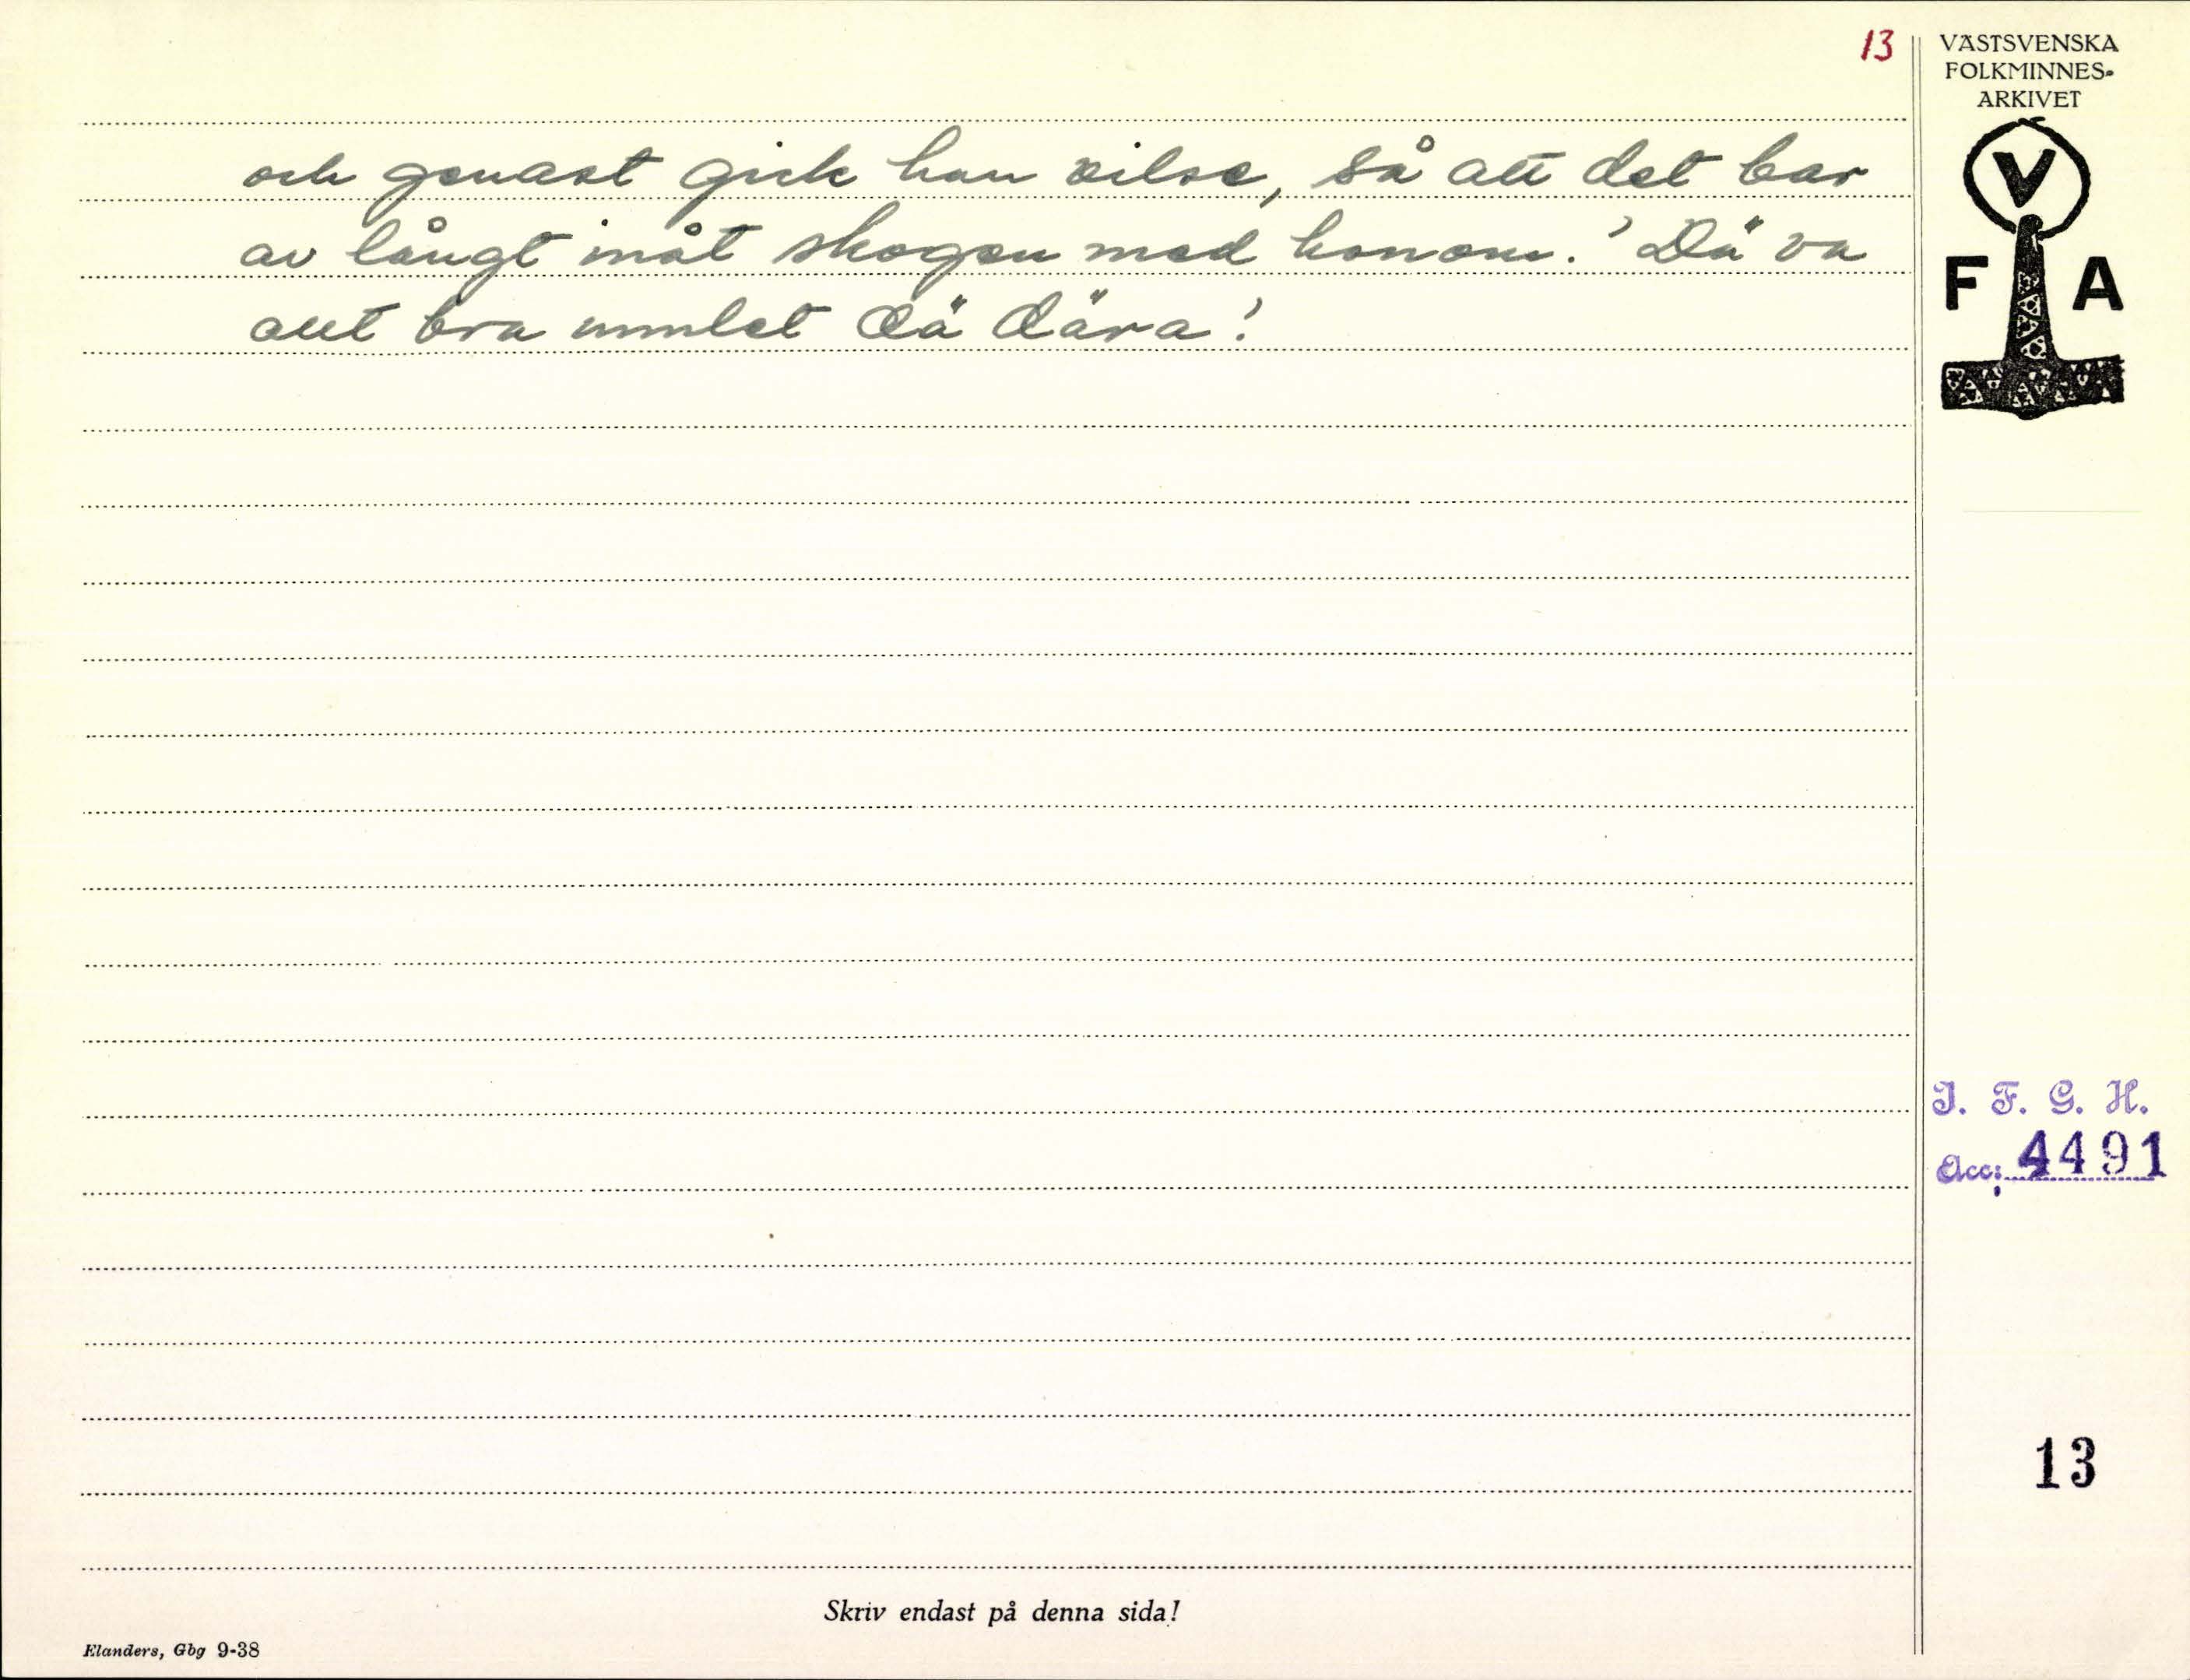 13
VÄSTSVENSKA
FOLKMINNES-
ARKIVET
V
F A
och genast gick han vilse, så att det bar
av långt inåt skogen med honom. 'Dä va
allt bra rumlet dä dära'.
I. F. G. H.
Acc: 4491
13
Skriv endast på denna sida!
Elanders, Gbg 9-38